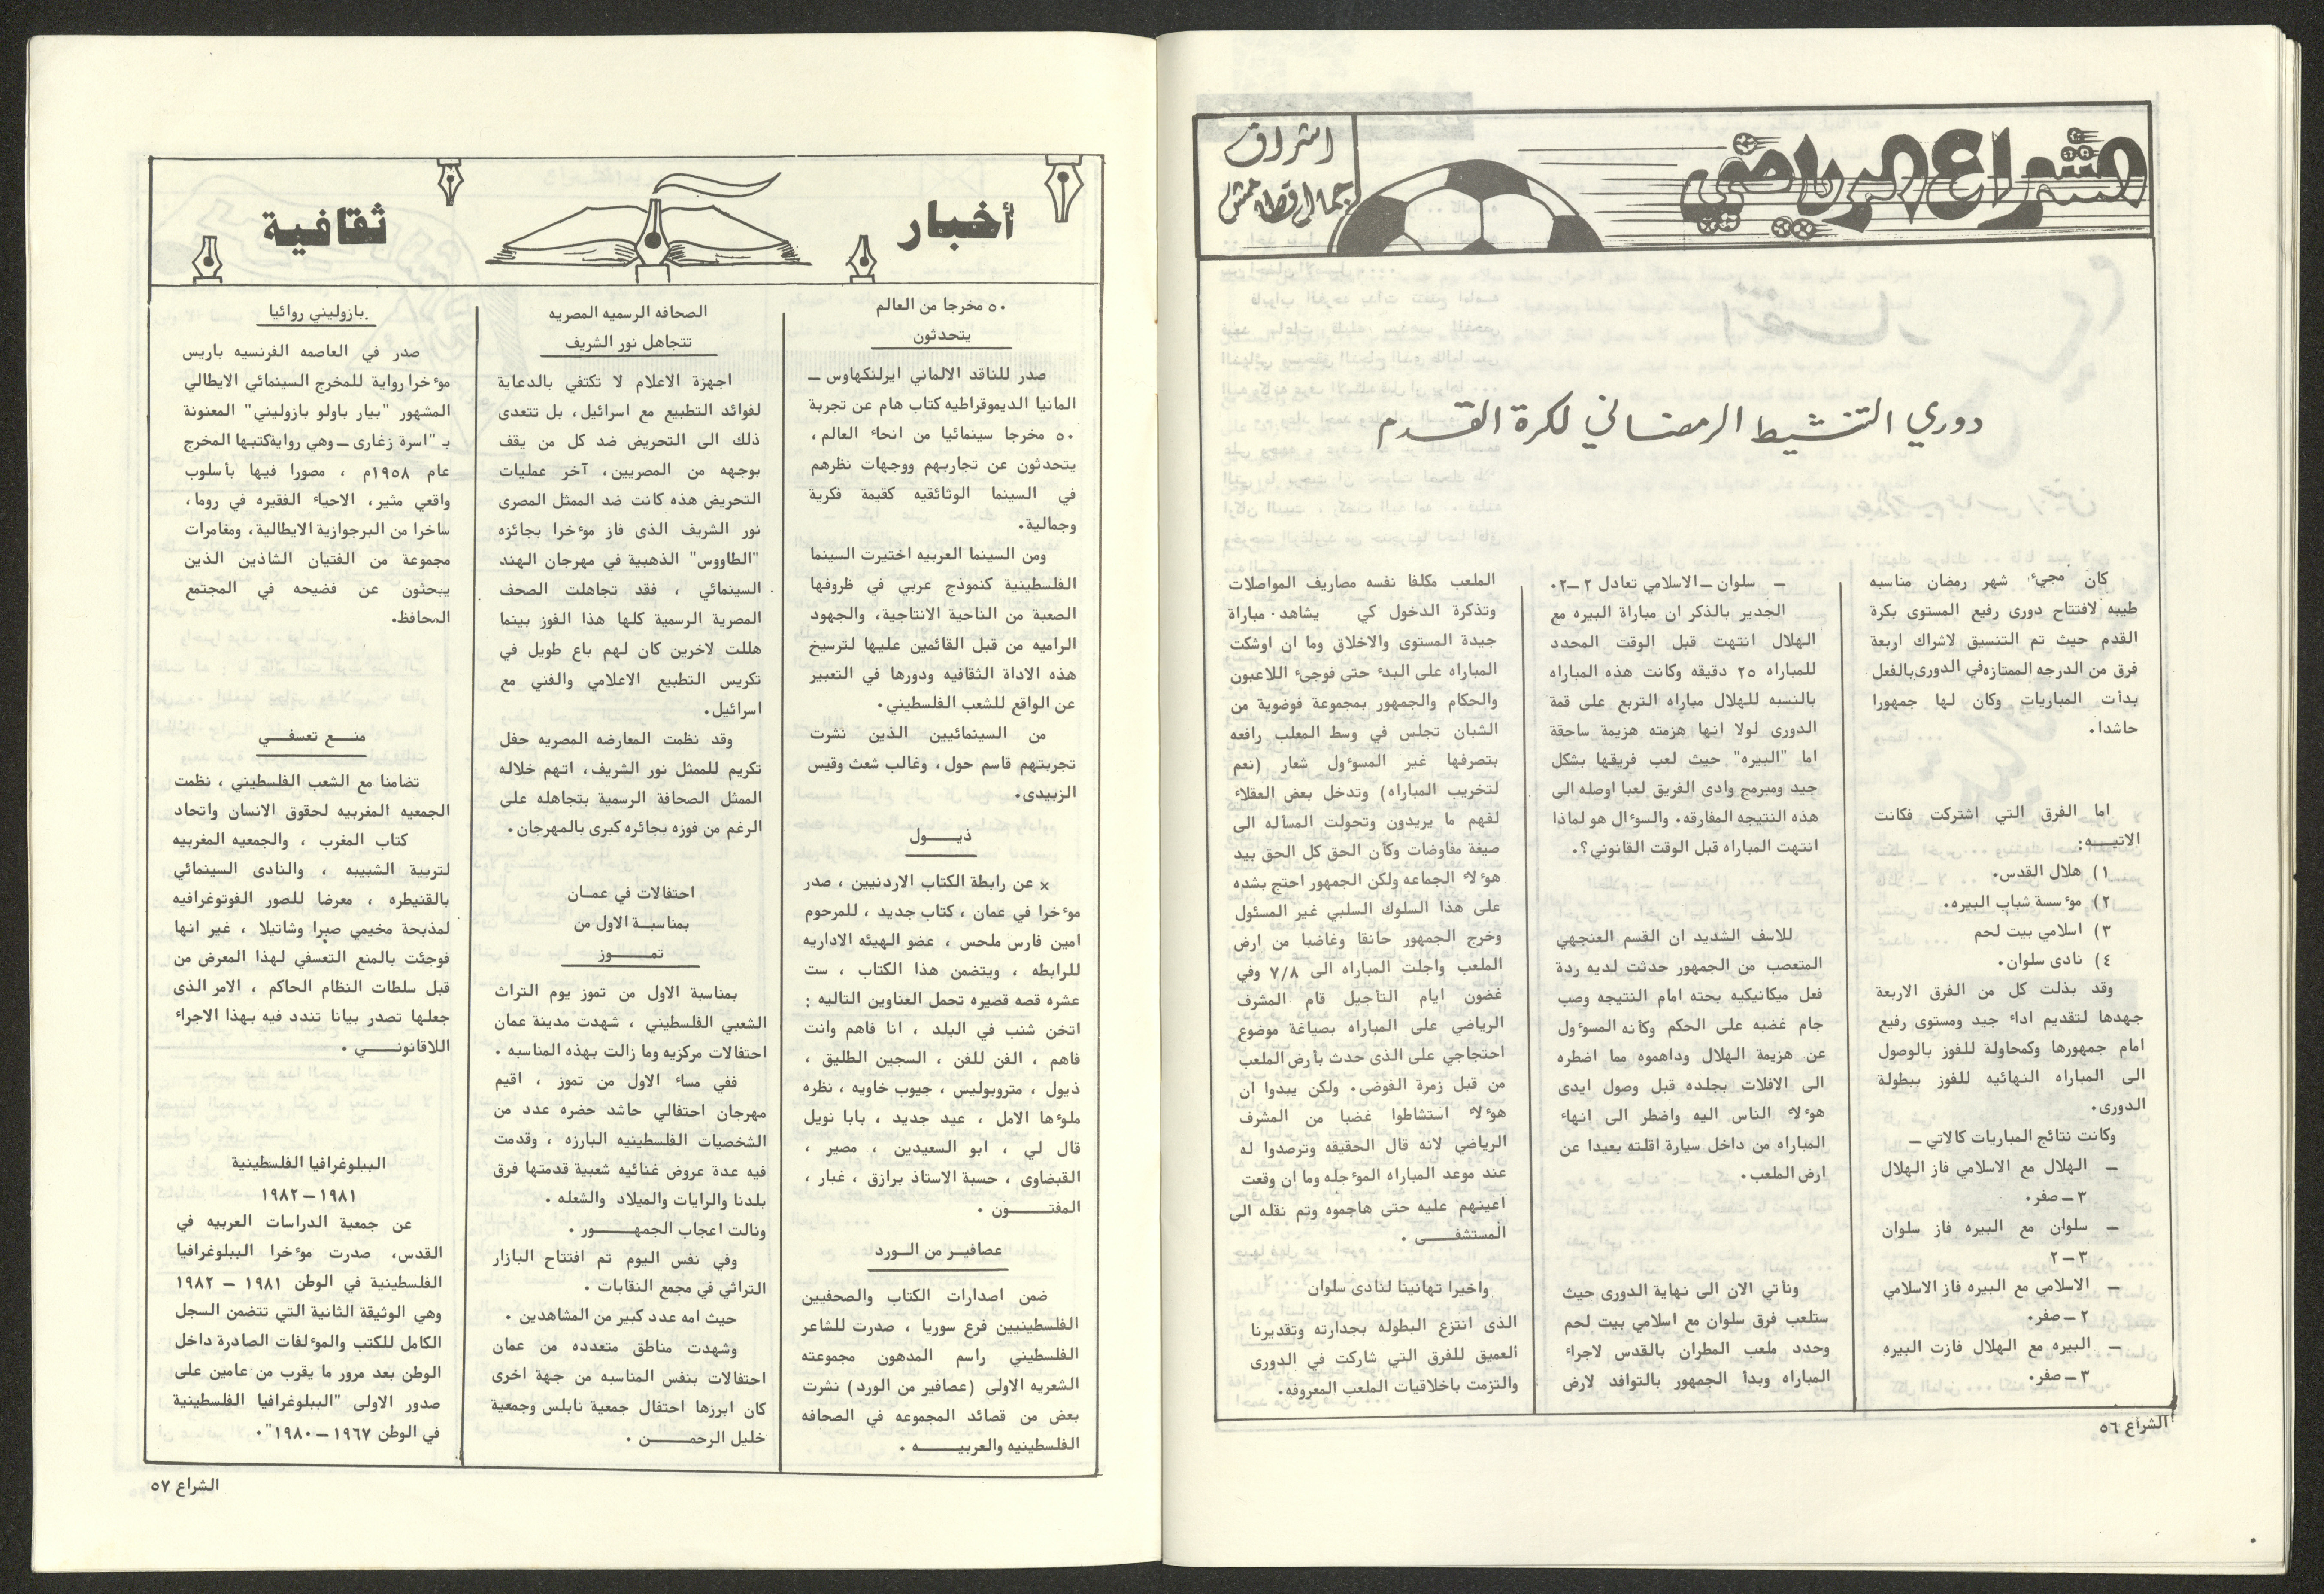 الشراع الرياضي
اشراف
جمال قطامش
دوري التنشيط الرمضاني لكرة القدم
كان مجيء شهر رمضان مناسبه
طيبه لافتتاح دورى رفيع المستوى بكرة
القدم حيث تم التنسيق لاشراك اربعة
فرق من الدرجه الممتازه في الدورى بالفعل
بدأت المباريات وكان لها جمهورا
حاشدا.
اما الفرق التي اشتركت فكانت
الاتيـــه:
١) هلال القدس.
٢) موءسسة شباب البيره.
٣) اسلامي بيت لحم
٤) نادى سلوان.
وقد بذلت كل من الفرق الاربعة
جهدها لتقديم اداء جيد ومستوى رفيع
امام جمهورها وكمحاولة للفوز بالوصول
الى المباراه النهائيه للفوز ببطولة
الدورى.
وكانت نتائج المباريات كالاتي ــ
ــ الهلال مع الاسلامي فاز الهلال
٣ ــ صفر.
ــ سلوان مع البيره فاز سلوان
٣ ــ ٢
ــ الاسلامي مع البيره فاز الاسلامي
٢ ــ صفر.
ــ البيره مع الهلال فازت البيره
٣ ــ صفر.
ــ سلوان ــ الاسلامي تعادل ٢ ــ ٢.
الجدير بالذكر ان مباراة البيره مع
الهلال انتهت قبل الوقت المحدد
للمباراه ٢٥ دقيقه وكانت هذه المباراه
بالنسبه للهلال مباراه التربع على قمة
الدورى لولا انها هزمته هزيمة ساحقة
اما "البيره" حيث لعب فريقها بشكل
جيد ومبرمج وادى الفريق لعبا اوصله الى
هذه النتيجه المفارقه. والسوءال هو لماذا
انتهت المباراه قبل الوقت القانوني؟.
للاسف الشديد ان القسم العنجهي
المتعصب من الجمهور حدثت لديه ردة
فعل ميكانيكيه بحته امام النتيجه وصب
جام غضبه على الحكم وكأنه المسوءول
عن هزيمة الهلال وداهموه مما اضطره
الى الافلات بجلده قبل وصول ايدى
هوءلاء الناس اليه واضطر الى انهاء
المباراه من داخل سيارة اقلته بعيدا عن
ارض الملعب.
ونأتي الان الى نهاية الدورى حيث
ستلعب فرق سلوان مع اسلامي بيت لحم
وحدد ملعب المطران بالقدس لاجراء
المباراه وبدأ الجمهور بالتوافد لارض
الملعب مكلفا نفسه مصاريف المواصلات
وتذكرة الدخول كي يشاهد. مباراة
جيدة المستوى والاخلاق وما ان اوشكت
المباراه على البدء حتى فوجىء اللاعبون
والحكام والجمهور بمجموعة فوضوية من
الشبان تجلس في وسط المعلب رافعه
بتصرفها غير المسوءول شعار (نعم
لتخريب المباراه) وتدخل بعض العقلاء
لفهم ما يريدون وتحولت المسأله الى
صيغة مفاوضات وكأن الحق كل الحق بيد
هوءلاء الجماعه ولكن الجمهور احتج بشده
على هذا السلوك السلبي غير المسئول
وخرج الجمهور حانقا وغاضبا من ارض
الملعب واجلت المباراه الى ٧/٨ وفي
غضون ايام التأجيل قام المشرف
الرياضي على المباراه بصياغة موضوع
احتجاجي على الذى حدث بأرض الملعب
من قبل زمرة الفوضى. ولكن يبدوا ان
هوءلاء استشاطوا غضبا من المشرف
الرياضي لانه قال الحقيقه وترصدوا له
عند موعد المباراه الموءجله وما ان وقعت
اعينهم عليه حتى هاجموه وتم نقله الى
المستشفــــى .
واخيرا تهانينا لنادى سلوان
الذى انتزع البطوله بجدارته وتقديرنا
العميق للفرق التي شاركت في الدورى
والتزمت باخلاقيات الملعب المعروفه.
الشراع ٥٦
أخبار
ثقافية
٥٠ مخرجا من العالم
يتحدثون
صدر للناقد الالماني ايرلنكهاوس ــ
المانيا الديموقراطيه كتاب هام عن تجربة
٥٠ مخرجا سينمائيا من انحاء العالم،
يتحدثون عن تجاربهم ووجهات نظرهم
في السينما الوثائقيه كقيمة فكرية
وجمالية.
ومن السينما العربيه اختيرت السينما
الفلسطينية كنموذج عربي في ظروفها
الصعبة من الناحية الانتاجية، والجهود
الراميه من قبل القائمين عليها لترسيخ
هذه الاداة الثقافيه ودورها في التعبير
عن الواقع للشعب الفلسطيني.
من السينمائيين الذين نشرت
تجربتهم قاسم حول، وغالب شعث وقيس
الزبيدى.
ذيـــول
× عن رابطة الكتاب الاردنيين ، صدر
موءخرا في عمان ، كتاب جديد ، للمرحوم
امين فارس ملحس ، عضو الهيئه الاداريه
للرابطه ، ويتضمن هذا الكتاب ، ست
عشره قصه قصيره تحمل العناوين التاليه :
اتخن شنب في البلد ، انا فاهم وانت
فاهم ، الفن للفن ، السجين الطليق ،
ذيول ، متروبوليس ، جيوب خاويه ، نظره
ملوءها الامل ، عيد جديد ، بابا نويل
قال لي ، ابو السعيدين ، مصير ،
القبضاوى ، حسبة الاستاذ برازق ، غبار ،
المفتـــــون .
عصافيـر من الــورد
ضمن اصدارات الكتاب والصحفيين
الفلسطينيين فرع سوريا ، صدرت للشاعر
الفلسطيني راسم المدهون مجموعته
الشعريه الاولى (عصافير من الورد) نشرت
بعض من قصائد المجموعه في الصحافه
الفلسطينيه والعربيـــــه .
الصحافه الرسميه المصريه
تتجاهل نور الشريف
اجهزة الاعلام لا تكتفي بالدعاية
لفوائد التطبيع مع اسرائيل، بل تتعدى
ذلك الى التحريض ضد كل من يقف
بوجهه من المصريين، آخر عمليات
التحريض هذه كانت ضد الممثل المصرى
نور الشريف الذى فاز موءخرا بجائزه
"الطاووس" الذهبية في مهرجان الهند
السينمائي ، فقد تجاهلت الصحف
المصرية الرسمية كلها هذا الفوز بينما
هللت لاخرين كان لهم باع طويل في
تكريس التطبيع الاعلامي والفني مع
اسرائيل.
وقد نظمت المعارضه المصريه حفل
تكريم للممثل نور الشريف، اتهم خلاله
الممثل الصحافة الرسمية بتجاهله على
الرغم من فوزه بجائره كبرى بالمهرجان.
احتفالات في عمــان
بمناسبــة الاول من
تمـــــوز
بمناسبة الاول من تموز يوم التراث
الشعبي الفلسطيني ، شهدت مدينة عمان
احتفالات مركزيه وما زالت بهذه المناسبه .
ففي مساء الاول من تموز ، اقيم
مهرجان احتفالي حاشد حضره عدد من
الشخصيات الفلسطينيه البارزه ، وقدمت
فيه عدة عروض غنائيه شعبية قدمتها فرق
بلدنا والرايات والميلاد والشعله .
ونالت اعجاب الجمهـــــور .
وفي نفس اليوم تم افتتاح البازار
التراثي في مجمع النقابات .
حيث امه عدد كبير من المشاهدين .
وشهدت مناطق متعدده من عمان
احتفالات بنفس المناسبه من جهة اخرى
كان ابرزها احتفال جمعية نابلس وجمعية
خليل الرحمـــــن .
بازوليني روائيا
صدر في العاصمه الفرنسيه باريس
موءخرا رواية للمخرج السينمائي الايطالي
المشهور "بيار باولو بازوليني" المعنونة
بـ "اسرة زغارى ــ وهي رواية كتبها المخرج
عام ١٩٥٨م ، مصورا فيها بأسلوب
واقعي مثير، الاحياء الفقيره في روما،
ساخرا من البرجوازية الايطالية، ومغامرات
مجموعة من الفتيان الشاذين الذين
يبحثون عن فضيحه في المجتمع
المحافظ.
منـــع تعسفــي
تضامنا مع الشعب الفلسطيني ، نظمت
الجمعيه المغربيه لحقوق الانسان واتحاد
كتاب المغرب ، والجمعيه المغربيه
لتربية الشبيبه ، والنادى السينمائي
بالقنيطره ، معرضا للصور الفوتوغرافيه
لمذبحة مخيمي صبرا وشاتيلا ، غير انها
فوجئت بالمنع التعسفي لهذا المعرض من
قبل سلطات النظام الحاكم ، الامر الذى
جعلها تصدر بيانا تندد فيه بهذا الاجراء
اللاقانونـــــي .
الببلوغرافيا الفلسطينية
١٩٨١ ــ ١٩٨٢
عن جمعية الدراسات العربيه في
القدس، صدرت موءخرا الببلوغرافيا
الفلسطينية في الوطن ١٩٨١ ــ ١٩٨٢
وهي الوثيقة الثانية التي تتضمن السجل
الكامل للكتب والموءلفات الصادرة داخل
الوطن بعد مرور ما يقرب من عامين على
صدور الاولى "الببلوغرافيا الفلسطينية
في الوطن ١٩٦٧ ــ ١٩٨٠".
الشراع ٥٧